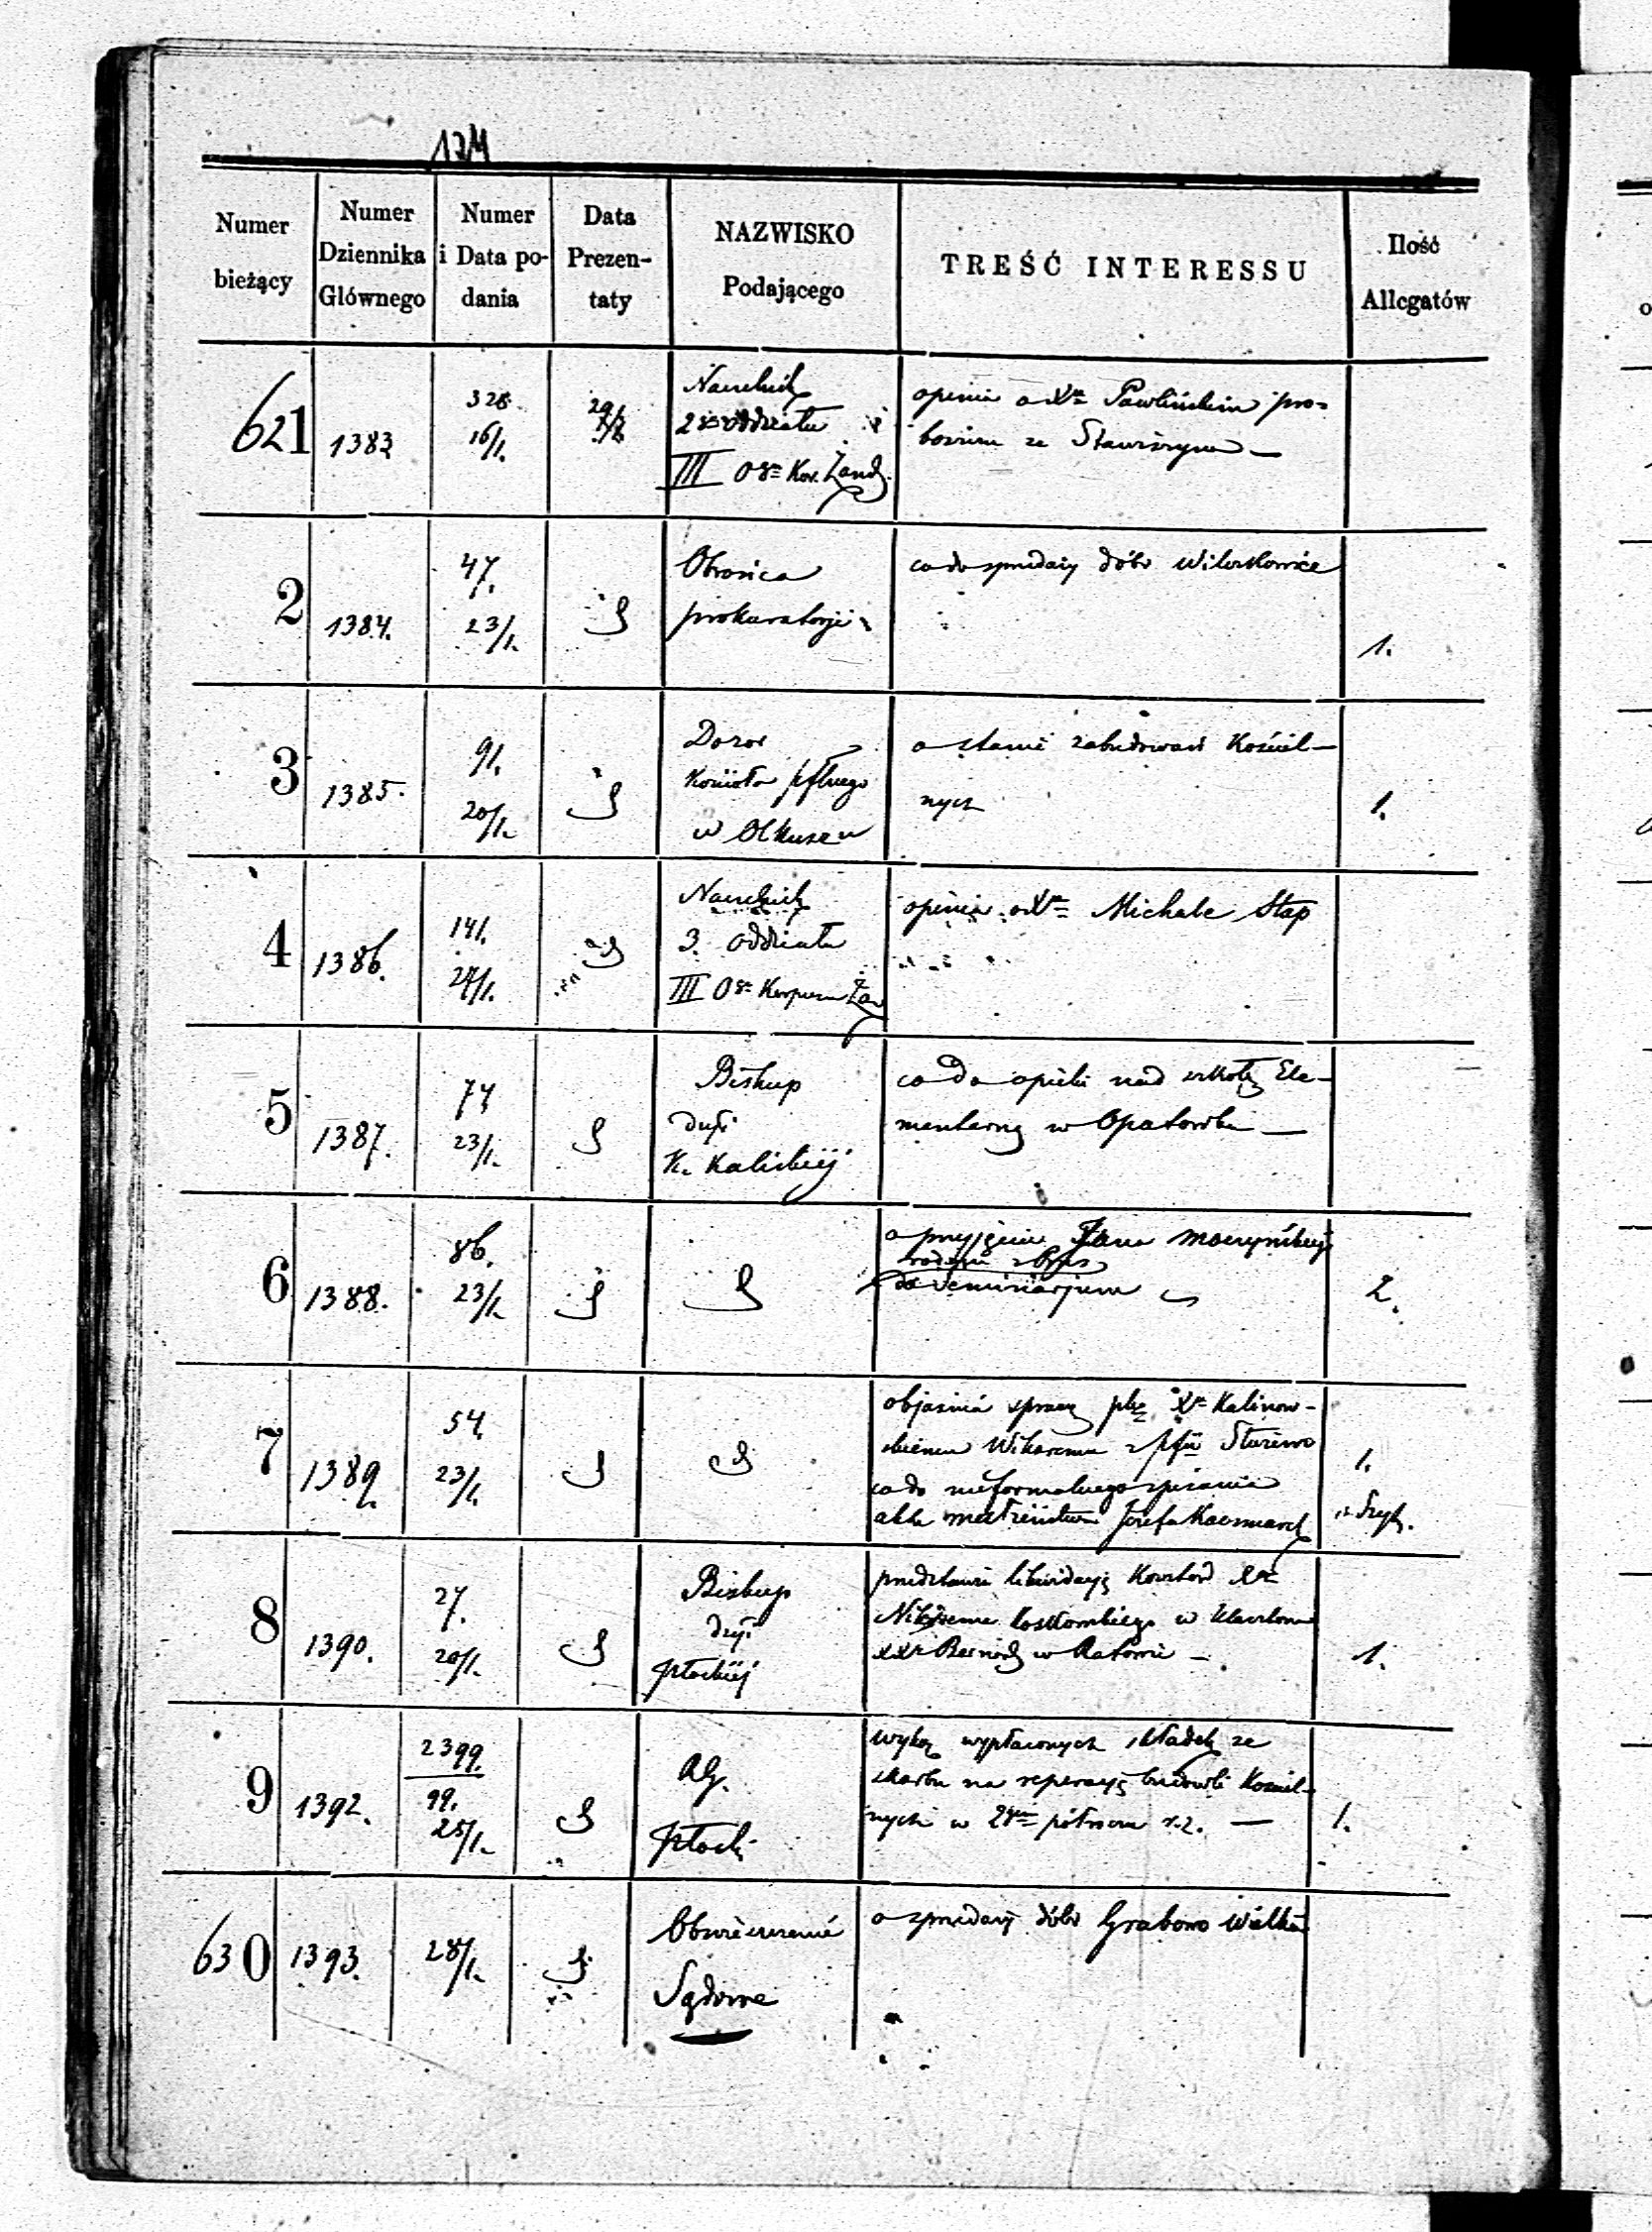 174
Numer bieżący
Numer Dziennika Głównego
Numer i Data po-dania
Data Prezen-taty
NAZWISKO Podającego
TREŚĆ INTERESSU
Ilość Allegatów
621
1383
328
16/1.
Naczelnik
2go oddziału
III Ogo Kor. Żand.
opinia o Xdzu Pawlińskim pro-
boszczu ze Stawiszyna —
2
1384.
47.
23/1.
Obrońca
prokuratorji
co do sprzedaży dóbr
1.
3
1385.
91.
20/1.
Dozór
Kościoła pflnego
w Olkuszu
o stanie zabudowań Kościel-
nych
1.
4
1386.
141.
24/1.
Naczelnik
3. oddziału
III Ogo Korpusu Żan
opinia o Xdzu Michale Stap
5
1387.
74
23/1.
Biskup
dyji
K. Kaliskiej
co do opieki nad szkołą Ele-
mentarną w Opatówku —
6
1388.
86.
23/1.
o przyjęcie Jana
do Seminarjum
2.
7
1389.
54.
23/1.
objaśnia sprawę plko Xdzu Kalinow-
skiemu Wikaremu z pfii
co do nieformalnego spisania
aktu małżeństwa Józefa Kaczmarek
1.
8
1390.
27.
20/1.
Biskup
dyji
Płockiej
przedstawia likwidacyę Kosztów Xdza
w Klasztorze
XXży Bernard w Ratowie —
1.
9
1392.
2399.
99.
25/1.
RG.
Płocki
wykaz wypłaconych składek ze
skarbu na reperacyę budowli Kościel-
nych w 2gim półroczu r.z. —
1.
630
1393.
28/1.
Obwieszczenie
Sądowe
o sprzedaży dóbr Grabowo Wielkie